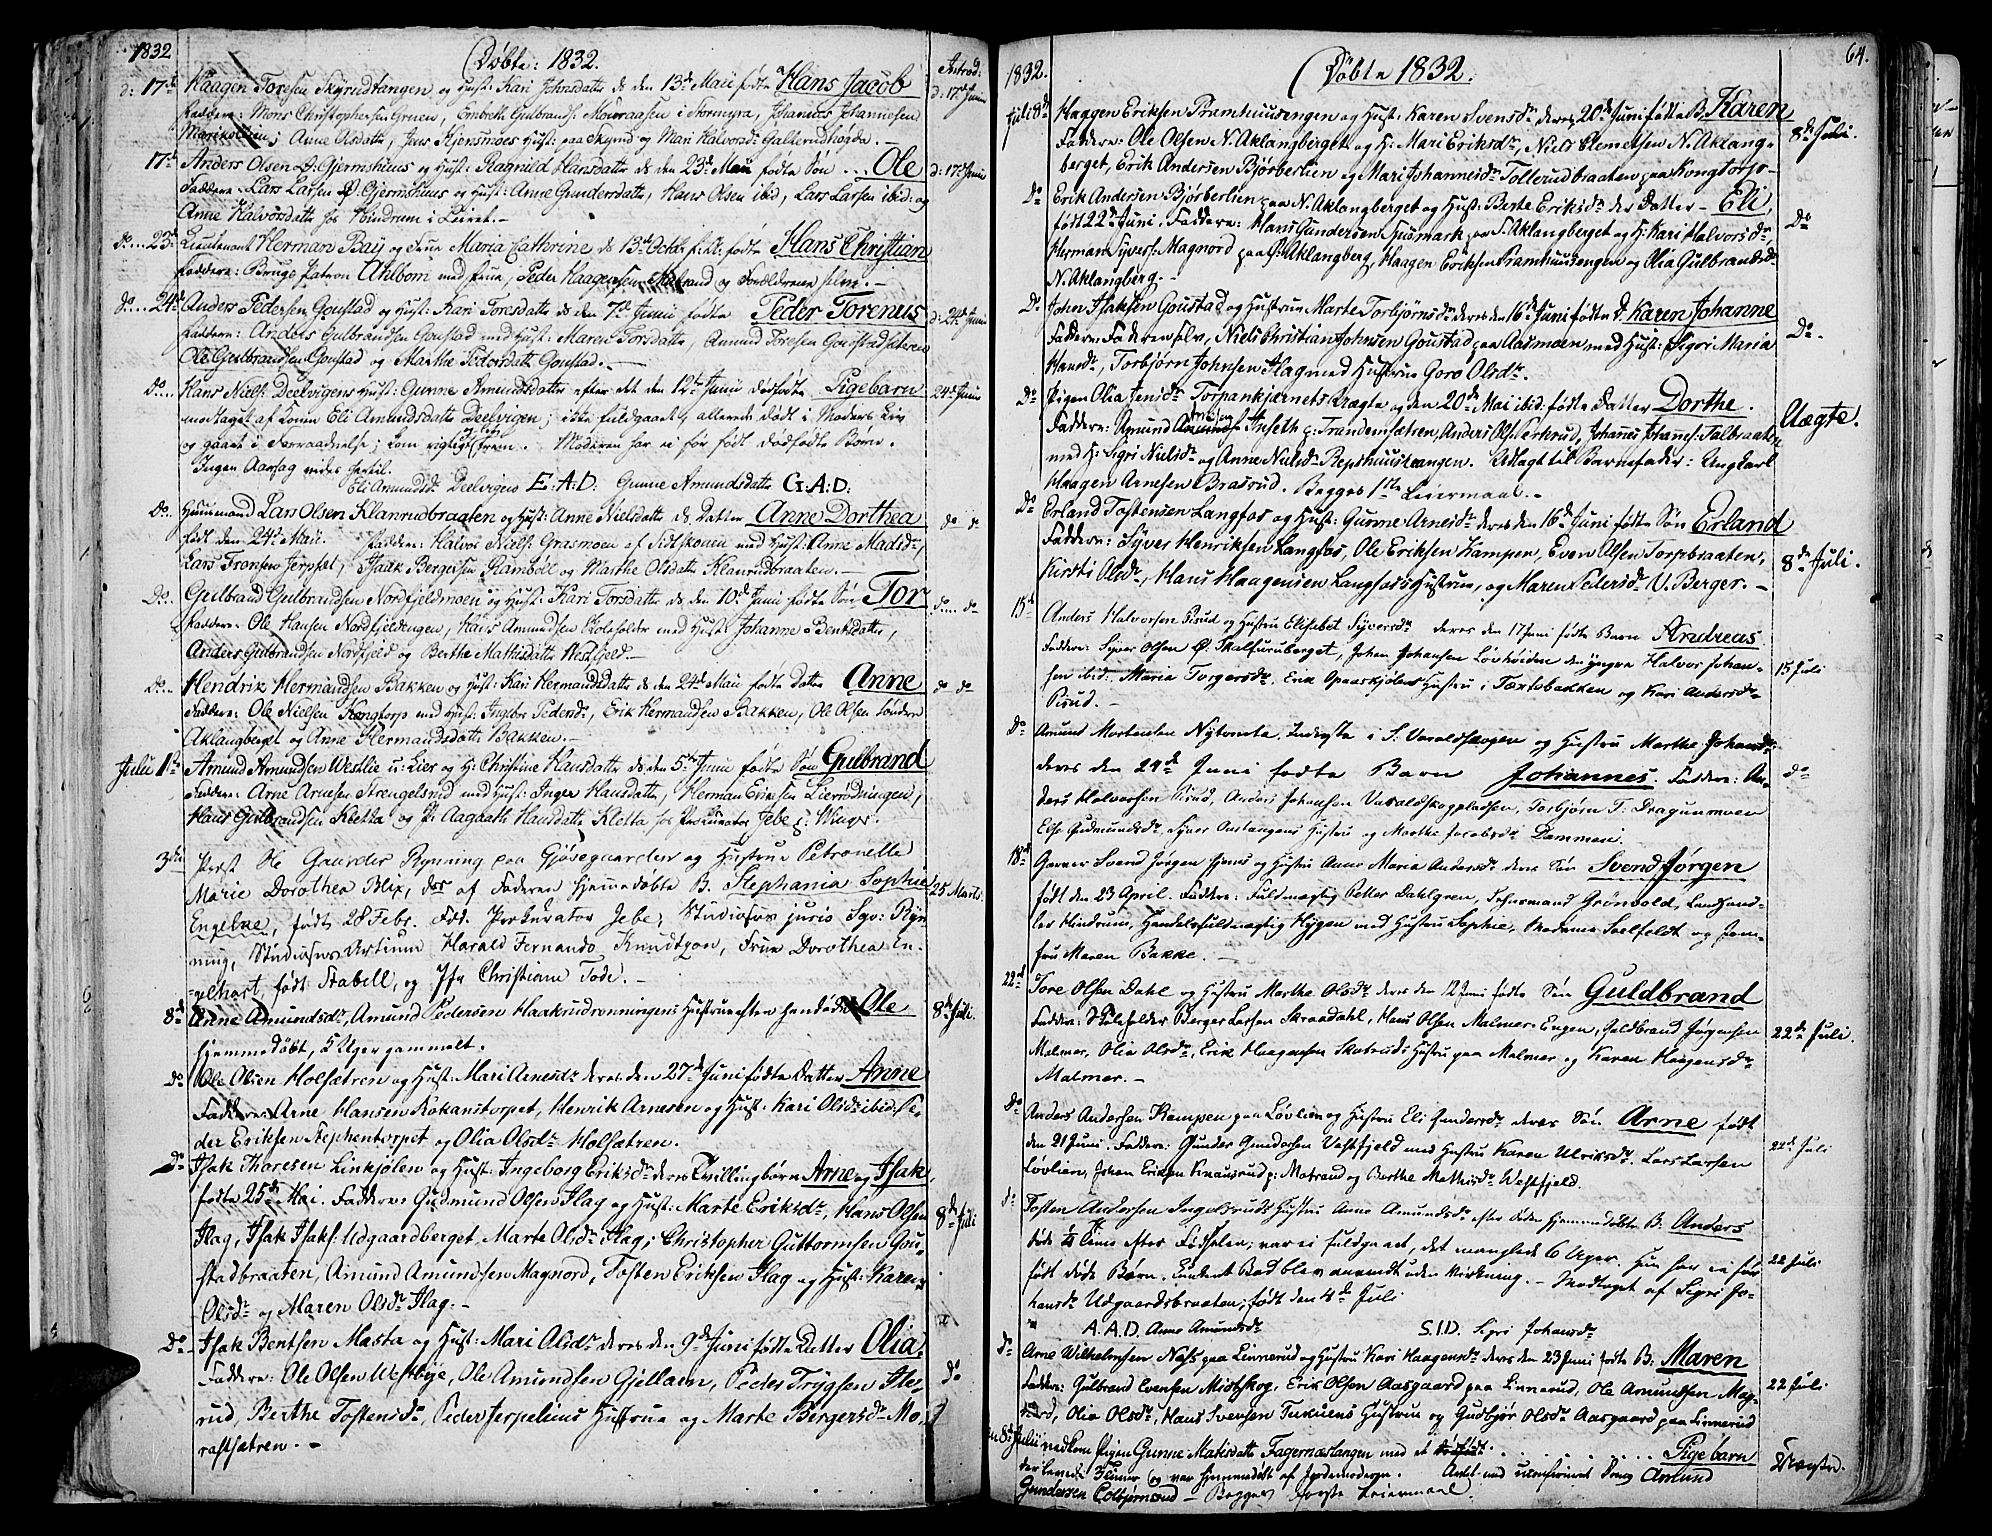 1832 Døbte: 1832. Introd:
d: 17de Haagen Toresen Skyrudtangen og Hust: Kari Johnsdatte ds den 13de Maii fødte Hans Jacob d: 17de Junii
Faddere: Mons Christophersen Gruen, Embreth Gulbrands: Mouraasen i Stormyra, Johannes Johannesen
Anne Olsdatte, Jens Kjernsmoes Hust: paa Skyrud og Mari Halvorsd: Galterudhøgda.
17de Anders Olsen Ø. Gjermshuus og Hust: Ragnild Hansdatte ds den 23de Maii fødte Søn ... Ole d: 17de Junii
Faddere: Lars Larsen Ø. Gjermshuus og Hust: Anne Gundersdatte, Hans Olsen ibid, Lars Larsen ibid: og
Anne Halvorsdatte fra Hindrum i Leiret.
do... 23de Lieutenant Herman Bay og Frue Maria Cathrine ds 13de Octbr. f.A. fødte Hans Christian
Faddere: Brugs Patron Ahlbom med Frue, Peder Haagensen Matrand og Forældrene selv.
do... 24de Anders Pedersen Goustad og Hust: Kari Toresdatte ds den 7de Junii fødte Peder Torenus d: 24de Junii
Faddere: Anders Gulbrandsen Goustad med Hust: Maren Torsdatte, Amund Toresen Goustadsæteren
Ole Gulbrandsen Goustad og Marthe Pedersdatte Goustad.
do.... Hans Niels: Deelvigens Hust: Gunne Amundsdatte efter det den 12te Junii dødfødte Pigebarn 24de Junii
modtaget af Konen Eli Amundsdatte Deelvigen; ikke fuldgaaet, allerede dødt i Moders Liv
og gaaet i Forraadnelse; kom rigtigt frem. Moderen har ei før født dødfødte Børn.
Ingen Aarsag vides hertil.
Eli Amundsd: Deelvigens E:A:D: Gunne Amundsdatte G:A:D:
Do.. Huusmand Lars Olsen Klanrudbraaten og Hust: Anne Nielsdatte ds Datter Anne Dorthea do do
født den 24de Maii. Faddere: Halvor Niels: Grasmoen af Eidskoug med Hust: Anne Madsdr,
Lars Fransen Jerpset, Isaak Bergersen Rambøl og Marthe Olsdatte Klanrudbraaten.
Do... Gulbrand Gulbrandsen Nordfjeldmoen og Hust: Kari Torsdatte ds den 10de Junii fødte Søn Tor do... do
Faddere: Ole Hansen Nordfjeldengen, Hans Amundsen Skoleholder med Hust: Johanne Bentsdatte,
Anders Gulbrandsen Nordfjeld og Berthe Mathisdatte Westfjeld.
Do... Hendrik Hermandsen Bakken og Hust: Kari Hermandsdatte ds den 24de Maii fødte Datter Anne do do
Faddere: Ole Nielsen Kongtorp med Hust: Ingebor Pedersdr, Erik Hermandsen Bakken, Ole Olsen Søndre
Aklangberget og Anne Hermandsdatte Bakken.
Julii 1ste Amund Amundsen Westlie u: Lier og H: Christine Hansdatte ds den 5te Junii fødte Søn Gulbrand
Faddere: Arne Arnesen Strengelsrud med Hust: Inger Hansdatte, Herman Eriksen Lierrødningen,
Hans Gulbrandsen Kletta og P: Aagaath Hansdatte Kletta hos Prokurator Jebe p: Vinger.
3die Præst Hr Gaarder Ryning paa Gjøsegaarden og Hustrue Petronelle
Marie Dorothea Blix, der af Faderen hjemmedøbte B. Stephania Sophie 25 Marts
Engelke, født 28 Febr. Fdd: Prokurator Jebe, Studiosus juris Sgv: Ry
ning, Studiosus Artium Harald Fernando Knudtzon, Frue Dorothea En
gelhart, født Stabell, og Jfr Christiane Tode.
8de Anne Amundsdr, Amund Pedersen Haakrudrønningens Hustrue efter hendes Ole 8de Juli.
hjemmedøbt, 5 Uger gammelt.
Do Ole Olsen Holsætren og Hust: Mari Arnesdr deres den 27de Juni fødte Datter Anne
Faddere: Arne Hansen Rokanstorpet, Henrik Arnesen og Hust: Kari Olsdr ibid: Pe-
der Eriksen Stephentorpet og Olia Olsdr Holsætren.
Do Isak Thoresen Linkjølen og Hust: Ingeborg Eriksdr deres Tvillingbørn Arne og Isak
fødte 25de Mai. Faddere: Gudmund Olsen Flag og Hust: Marte Eriksdr, Hans Olsen 8de Juli
Flag, Isak Isaks: Udgaardberget, Marte Olsdr Flag; Christopher Guttormsen Gou-
stadbraaten, Amund Amundsen Magnord, Tosten Eriksen Flag og Hust: Karen
Olsdr og Maren Olsdr Flag.
Do Isak Bentsen Masta og Hust: Mari Olsdr deres den 9de Juni fødte Datter Olia.
Faddere: Ole Olsen Westbye, Ole Amundsen Gjellum, Peder Trygsen Ste- do
rud, Berthe Tostensdr, Peder Jerpeliens Hustrue og Marte Bergersdr Mo-
rastsætren.
1832. Døbte 1832. 64.
Juli 8de Haagen Eriksen Bramhuusengen og Hust: Karen Svensdr deres 20de Juni fødte B. Karen 8de Juli.
Faddere: Ole Olsen N. Aklangberget og H: Mari Eriksdr, Niels Clemetsen N. Aklang-
berget, Erik Andersen Bjørberlien og Mari Johannesdr Tollerudbraaten paa Kongtorp.
Do Erik Andersen Bjørberlien paa N. Aklangberget og Hust: Berte Eriksdr des Datter Eli, Do
født 22de Juni. Faddere: Hans Gundersen paa S. Aklangberget og H: Kari Halvorsdr
Herman Syvers: Magnord paa S. Aklangberg, Haagen Eriksen Bramhuusengen og Olia Gulbrandsdr
N. Aklangberg.
Do John Isaksen Goustad og Hustrue Marte Torbjørnsdr deres den 16de Juni fødte D. Karen Johanne Do.
Faddere: Faderen selv, Niels Christian Johnsen Goustad paa Aasmoen med Hust: Sigri Maria
Hansdr, Torbjørn Johnsen Flag med Hustrue Goro Olsdr.
Do Pigen Olia Jensdr Torpankjernets uægte og den 20de Mai ibid: fødte Datter Dorthe. Uægte!
Faddere: Amund Inseth p: Trandemsætren, Anders Ols: Perkrud, Johanes Johanes: Talbraaten
med H: Sigri Nielsdr og Anne Nielsdr Repshuustangen. Udlagt til Barnefader: Ungkarl
Haagen Arnesen Brasrud. Begges 1ste Leiermaal.
Do Erland Tostensen Langfos og Hust: Gunne Arnesdr deres den 16de Juni fødte Søn Erland
Faddere: Syver Henriksen Langfos, Ole Eriksen Kampen, Even Olsen Torpbraaten, 8de Juli.
Kirsti Olsdr, Hans Haagensen Langfos Hustrue, og Maren Pedersdr V. Berger.
15de Anders Halvorsen Pisud og Hustru Elisabet Syversdr deres den 17 Juni fødte Barn Andreas
Faddere: Syver Olsen Ø. Skalfuruberget, Johan Johansen Lövhöiden den yngre Halvor Johan- 15 Juli
sen ibid. Maria Torgersdr. Erik Opaaskjølens Hustru i Tæxtebakken og Kari Andersdr
Pisud.
Do Amund Mortensen Nytomta, Inderste i S. Varaldskogen og Hustru Marthe Johansdr
deres den 24de Juni fødte Barn Johannes. Faddere: An- do
ders Halvorsen Pisud, Anders Johansen Varaldskogpladsen, Torbjørn T. Dragunmoen
Else Gudmundsdr, Syver Austangens Hustru og Marthe Jacobsdr Dammen.
18de Garver Svend Jörgen og Hustru Anne Maria Andersdr deres Sön Svend Jørgen
født den 23 April. Faddere: Fuldmægtig Petter Dahlgren, Grönvold, Landhand-
ler Hindrum, Handelsfuldmægtig Hygen med Hustru Sophie, Madame Saelfeldt og Jom-
fru Maren Bakke.
22de Tore Olsen Dahl og Hustru Marthe Olsdr deres den 12 Juni fødte Sön Guldbrand
Faddere: Skoleholder Berger Larsen Skraadahl, Hans Olsen Malmer-Engen, Guldbrand Jørgensen 22de Juli.
Malmer, Olia Olsdr, Erik Haagensen Skaterudt Hustru paa Malmer og Karen Haagensdr
Malmer.
Do Anders Andersen Kampen paa Lövlien og Hustru Eli Gundersdr deres Sön Arne født
den 21 Juni. Faddere: Gunder Gundersen Vestfjeld med Hustru Karen Ulriksdr. Lars Larsen 22de Juli
Lövlien, Johan Eriksen Knausrud p: Matrand og Berthe Mathisdr Westfjeld.
do Tosten Andersen Ingelsruds Hustru Anne Amundsdr efter deden hjemmedøbte B. Anders
døde Time efter Fødselen; var ei fuldgaaet, det manglede 6 Uger. Hun har ei før 22 Juli
født døde Børn. Bad blev anvendt uden Virkning. Modtaget af Sigri Jo-
hansdr Udgaardsbraaten; født den 4de Juli
A.A.D. Anne Amundsdr S.I.D. Sigri Johansdr
do Arne Wilhelmsen Nass paa Linnerud og Hustru Kari Haagensdr deres den 23 Juni fødte B. Maren
Faddere: Gulbrand Evensen Midtskog, Erik Olsen Aasgaard paa Linnerud, Ole Amundsen Mag- 22 Juli
nord, Olia Olsdr, Hans Svensen Hustru og Gudbjør Olsdr Aasgaard paa Linnerud
8de Julii nedkom Pigen Gunne Matisdatte Fagernæstangen med et Pigebarn
der levede 3 Timer og var hjemmedøbt af Jordemoderen. Amund Uægte.
Gundersen Colbjørnsrud — Begges første Leiermaal.